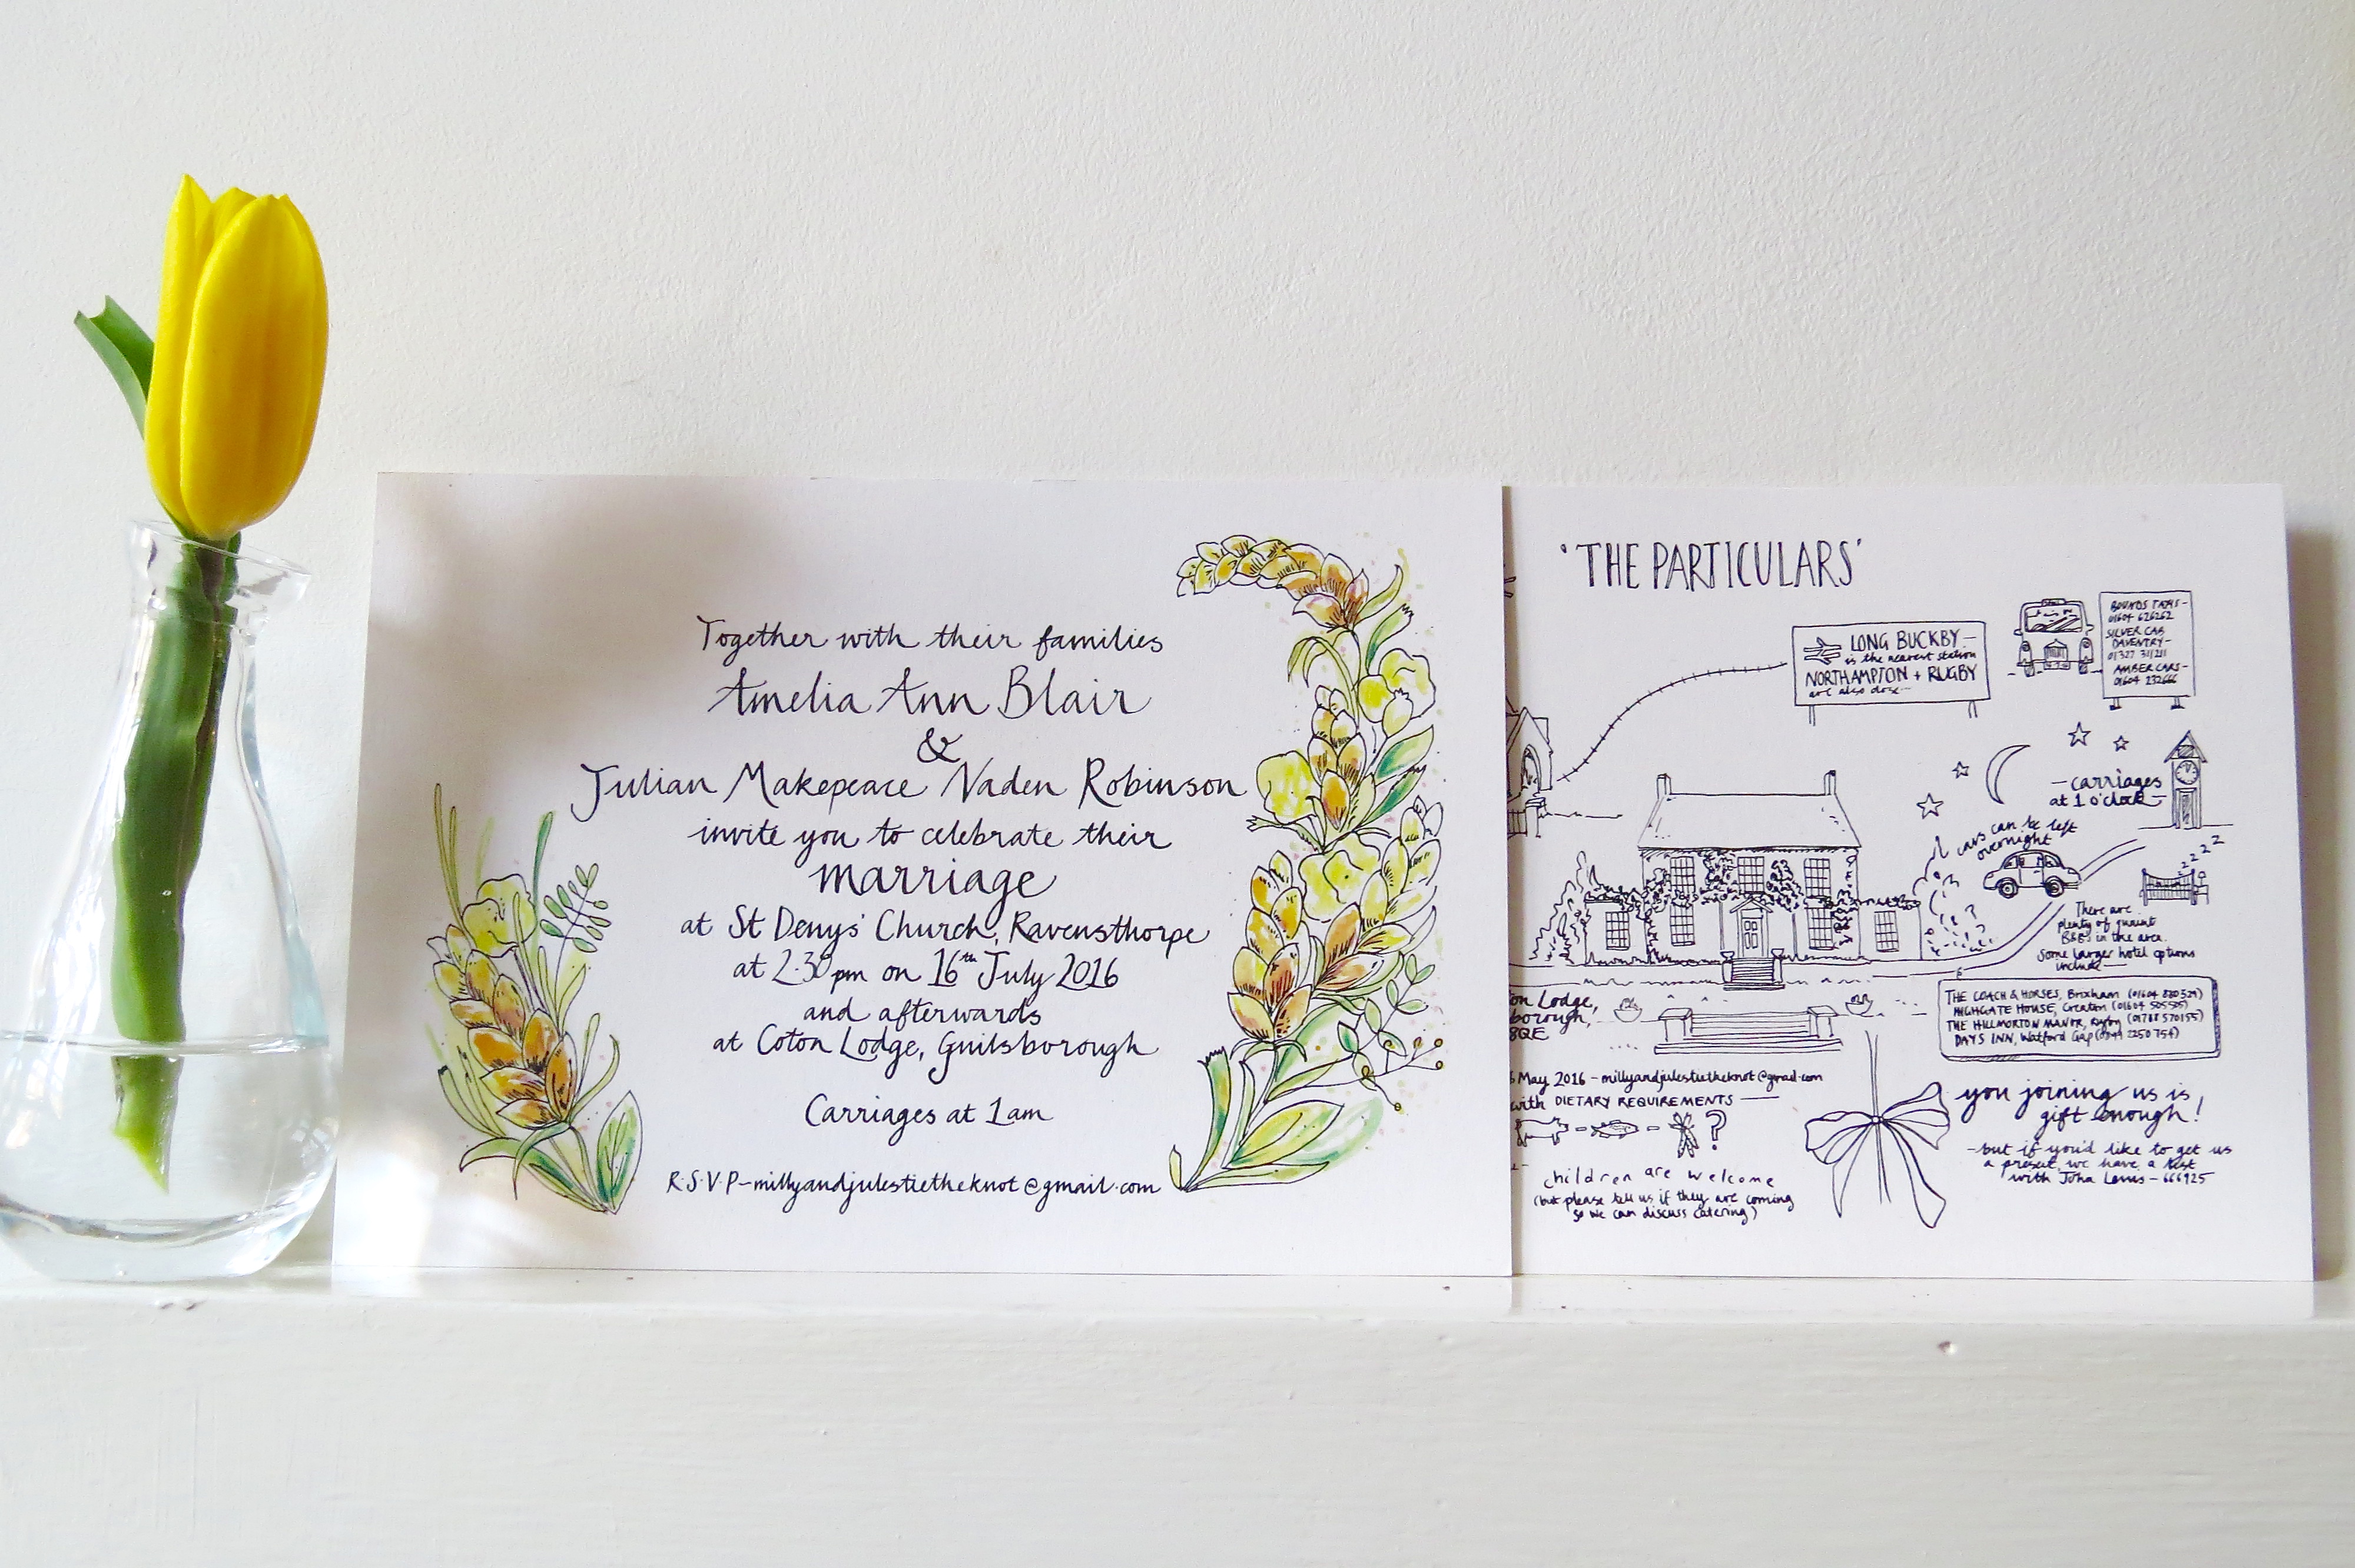 Together with their families
Amelia Ann Blair
&
Julian Makepeace Vaden Robinson
invite you to celebrate their
marriage
at St Denys' Church, Ravensthorpe
at 2.30pm on 16th July 2016
and afterwards
at Coton Lodge, Guilsborough
Carriages at 1am
R.S.V.P-millyandjulestietheknot@gmail.com
'THE PARTICULARS'
LONG BUCKBY-
is the nearest station
NORTHAMPTON + RUGBY
are also close-
BOUNDS TAXIS-
01604 626262
SILVER CAB
DAVENTRY-
01327 311211
AMBER CARS-
01604 232666
-carriages
at 1 o'clock-
cars can be left
overnight
zzzz
There are
plenty of quaint
B&B's in the area.
Some larger hotel options
include-
on Lodge,
borough,
8QE
THE COACH & HORSES, Brixham (01604 880329)
HIGHGATE HOUSE, Creaton (01604 505505)
THE HILLMORTON MANOR, Rugby (01788 570155)
DAYS INN, Watford Gap
May 2016 - millyandjulestietheknot@gmail.com
with DIETARY REQUIREMENTS -
?
children are welcome
(but please tell us if they are coming
so we can discuss catering)
you joining us is
gift enough!
-but if you'd like to get us
a present, we have a list
with John Lewis - 666925